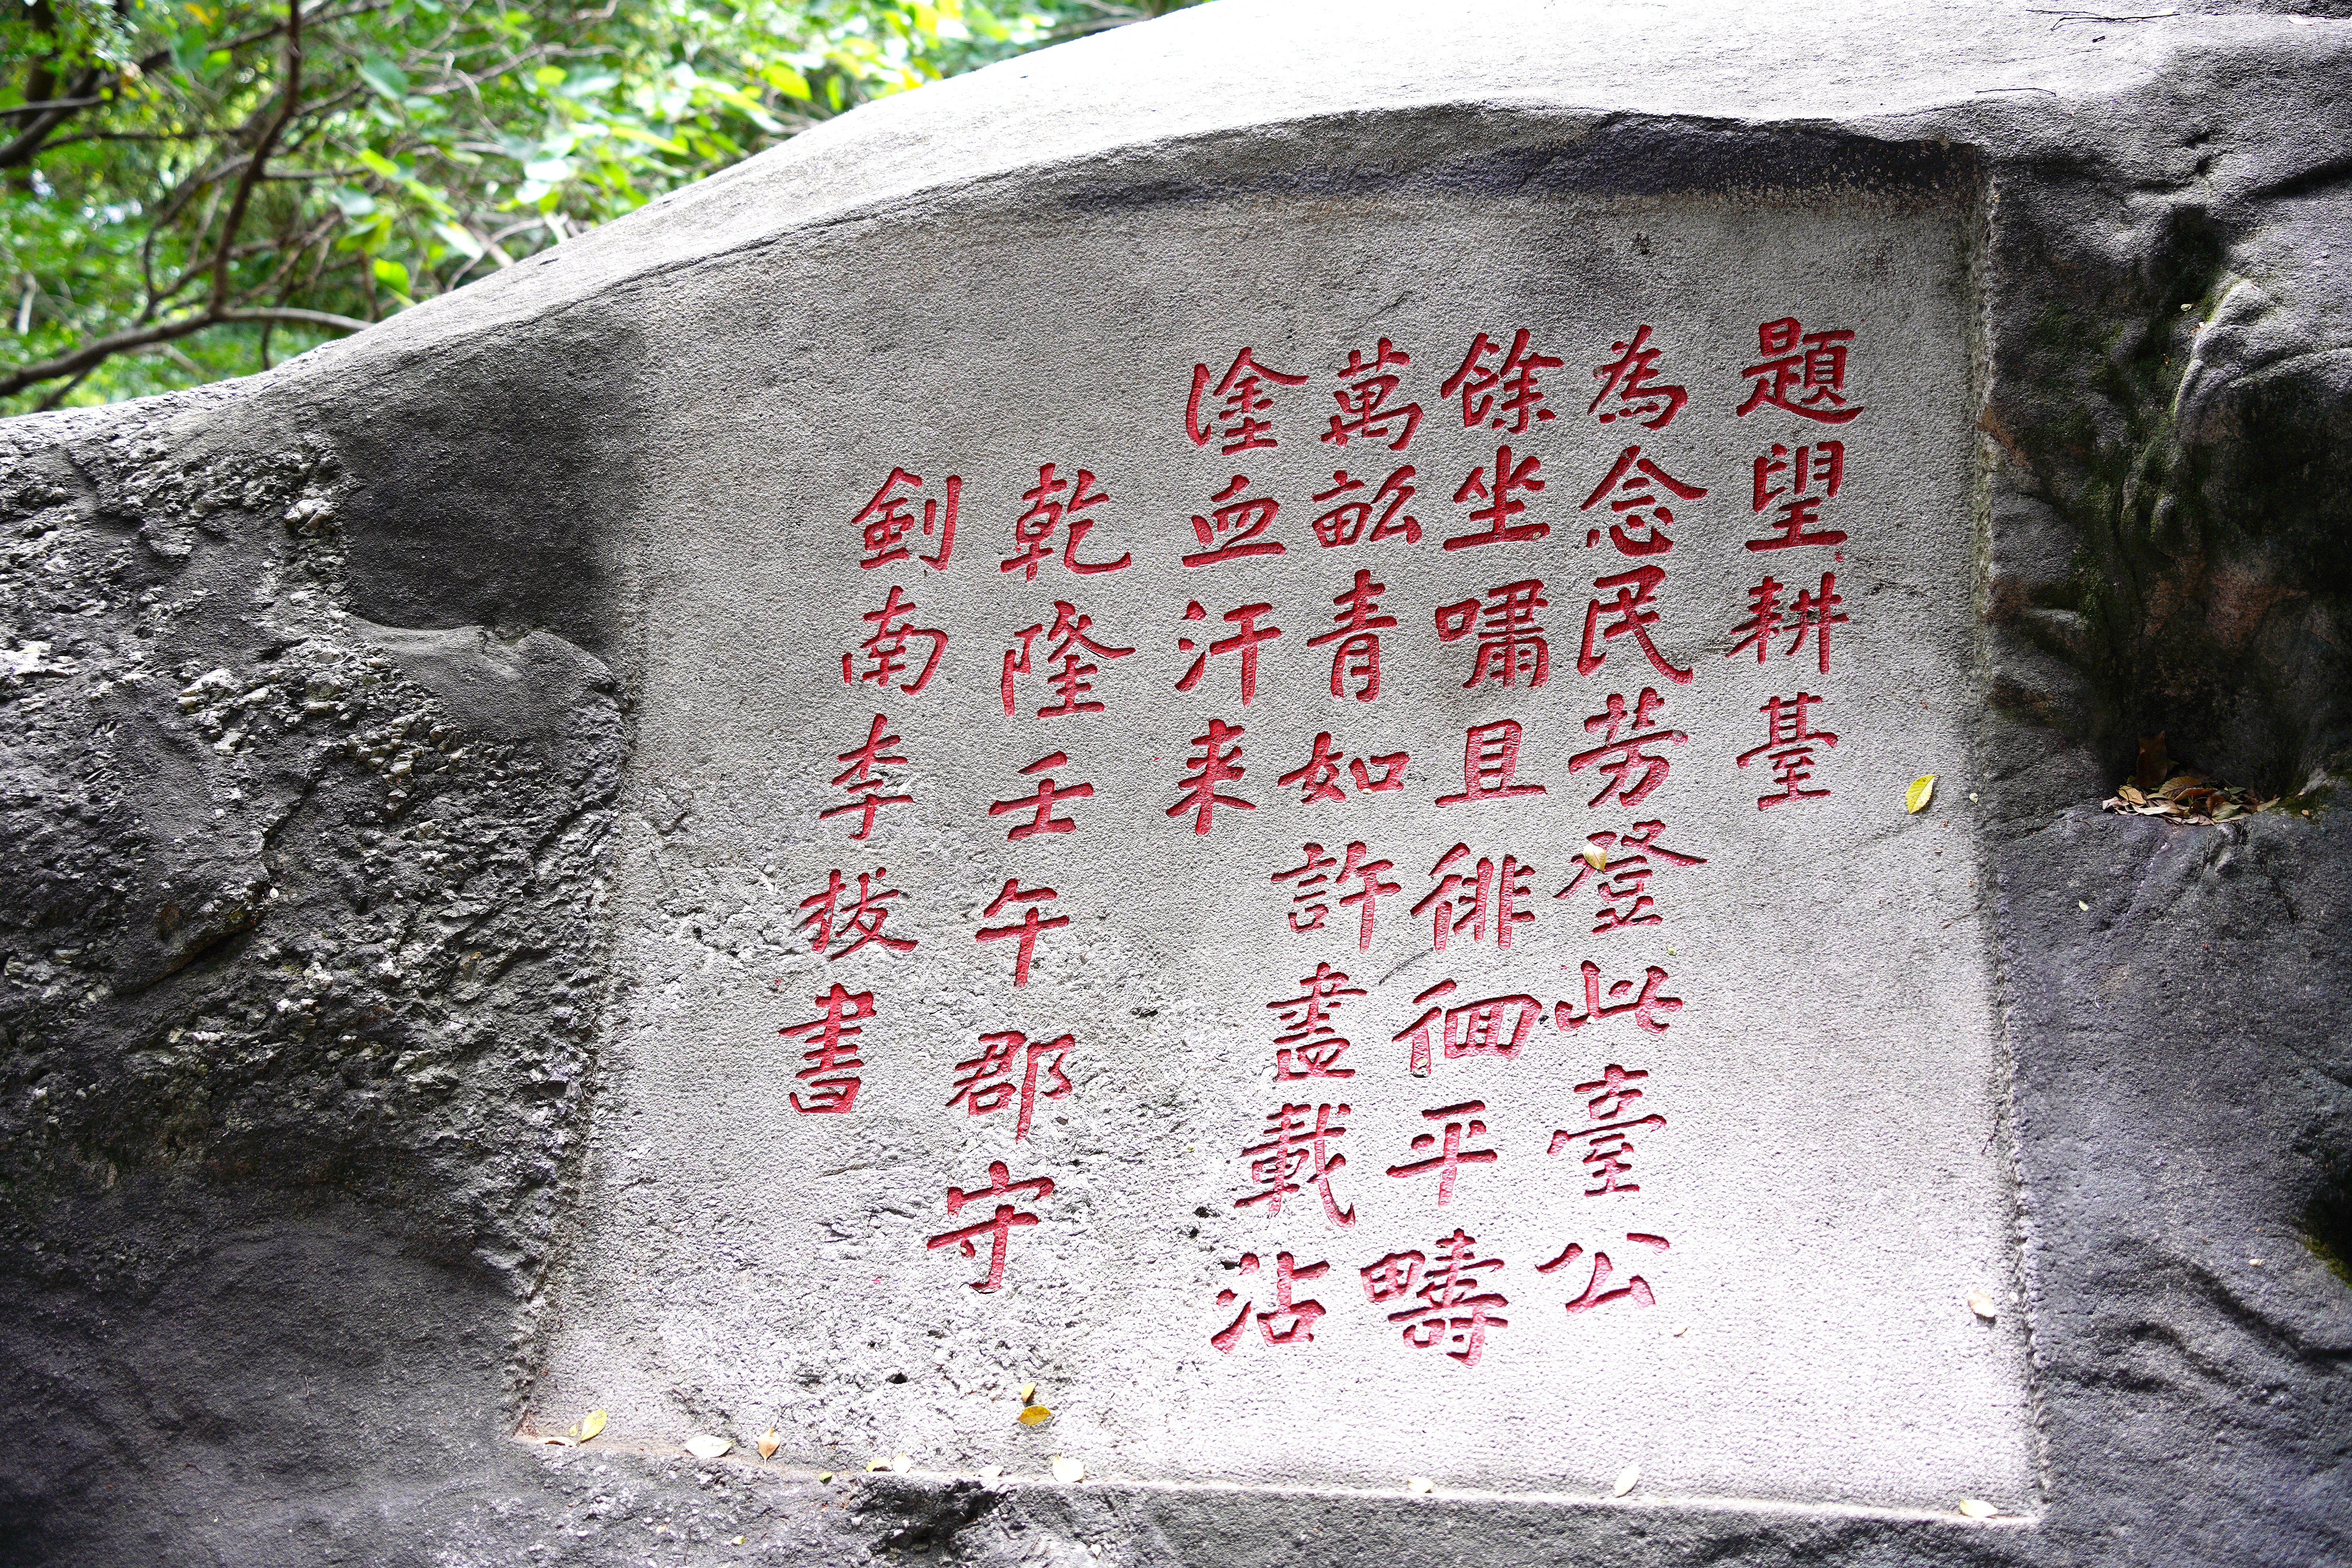 題望耕臺
為念民芳登此臺公
餘坐嘯且徘徊平疇
萬畝青如許盡載沾
塗血汗来
乾隆壬午郡守
劍南李拔書